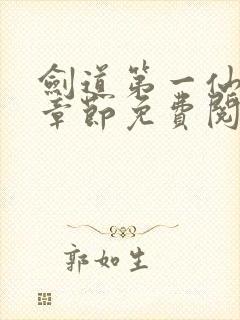 劍道第一仙
章節免費閱
郭如生